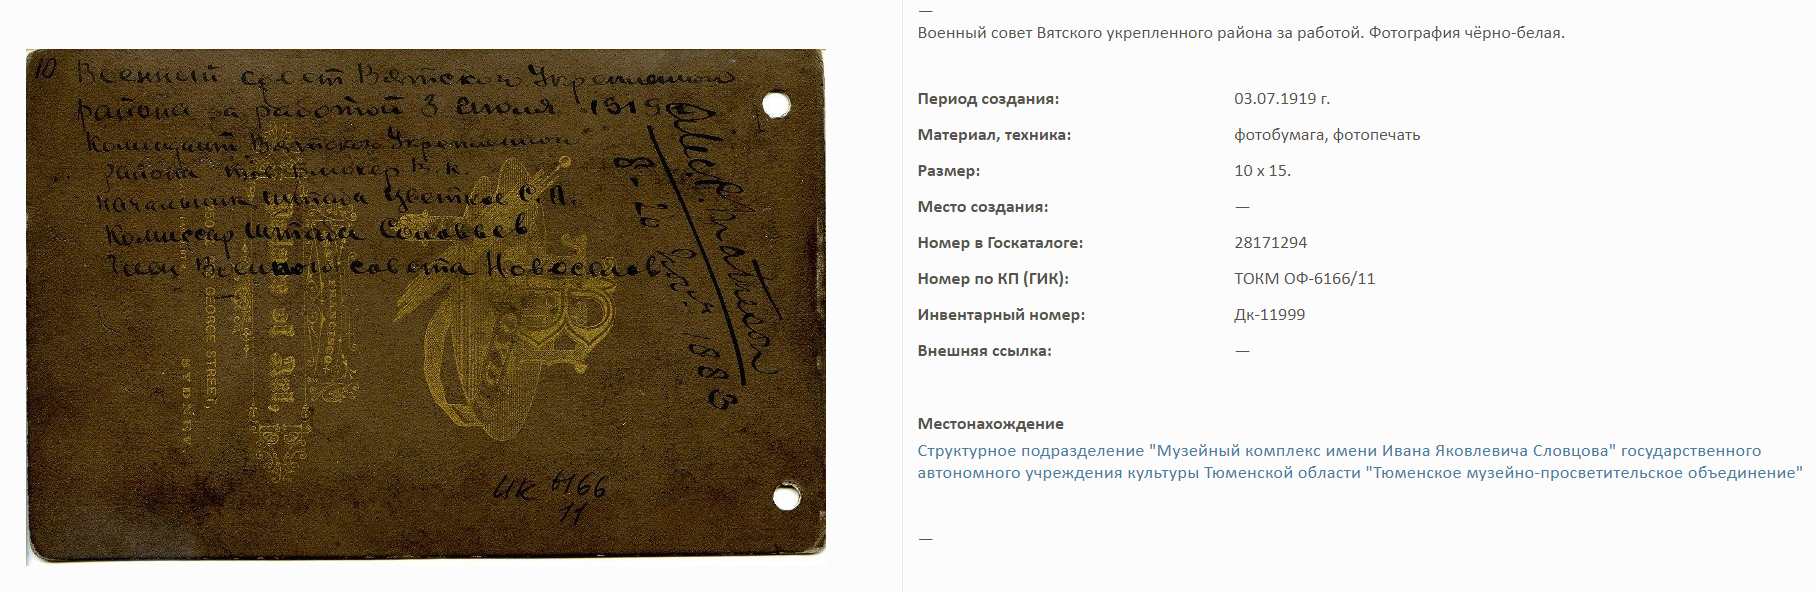 10 Военный совет Вятского Укрепленного
района за работой 3 июля 1919 г
Комендант Вятского Укрепленного
района тов Блюхер В. К.
начальник штаба Цветков С. А.
Комиссар штаба Соловьев
Член Военного совета Новоселов
8. 20
1883
GEORGE STREET,
SYDNEY
of Art,
ИК 6166
11
—
Военный совет Вятского укрепленного района за работой. Фотография чёрно-белая.
Период создания: 03.07.1919 г.
Материал, техника: фотобумага, фотопечать
Размер: 10 x 15.
Место создания: —
Номер в Госкаталоге: 28171294
Номер по КП (ГИК): ТОКМ ОФ-6166/11
Инвентарный номер: Дк-11999
Внешняя ссылка: —
Местонахождение
Структурное подразделение "Музейный комплекс имени Ивана Яковлевича Словцова" государственного
автономного учреждения культуры Тюменской области "Тюменское музейно-просветительское объединение"
—